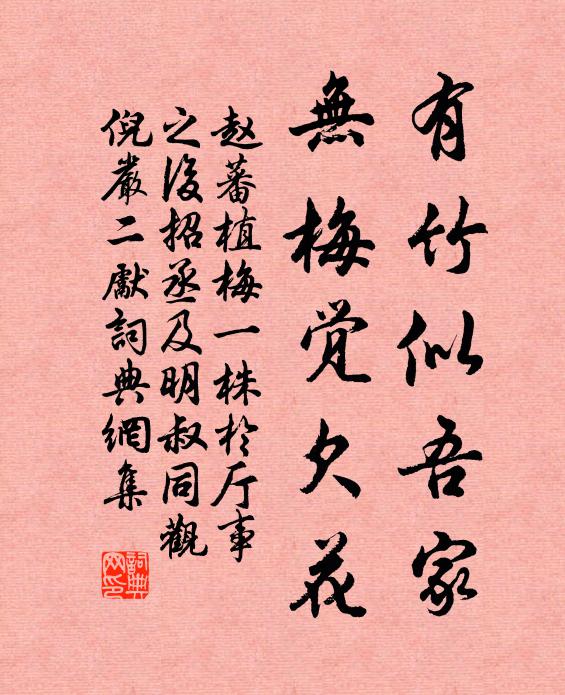 有竹似吾家
無梅觉欠花
赵蕃植梅一株於厅事
之後招丞及明叔同觀
倪嚴二獻詞典網集
詞典
网印